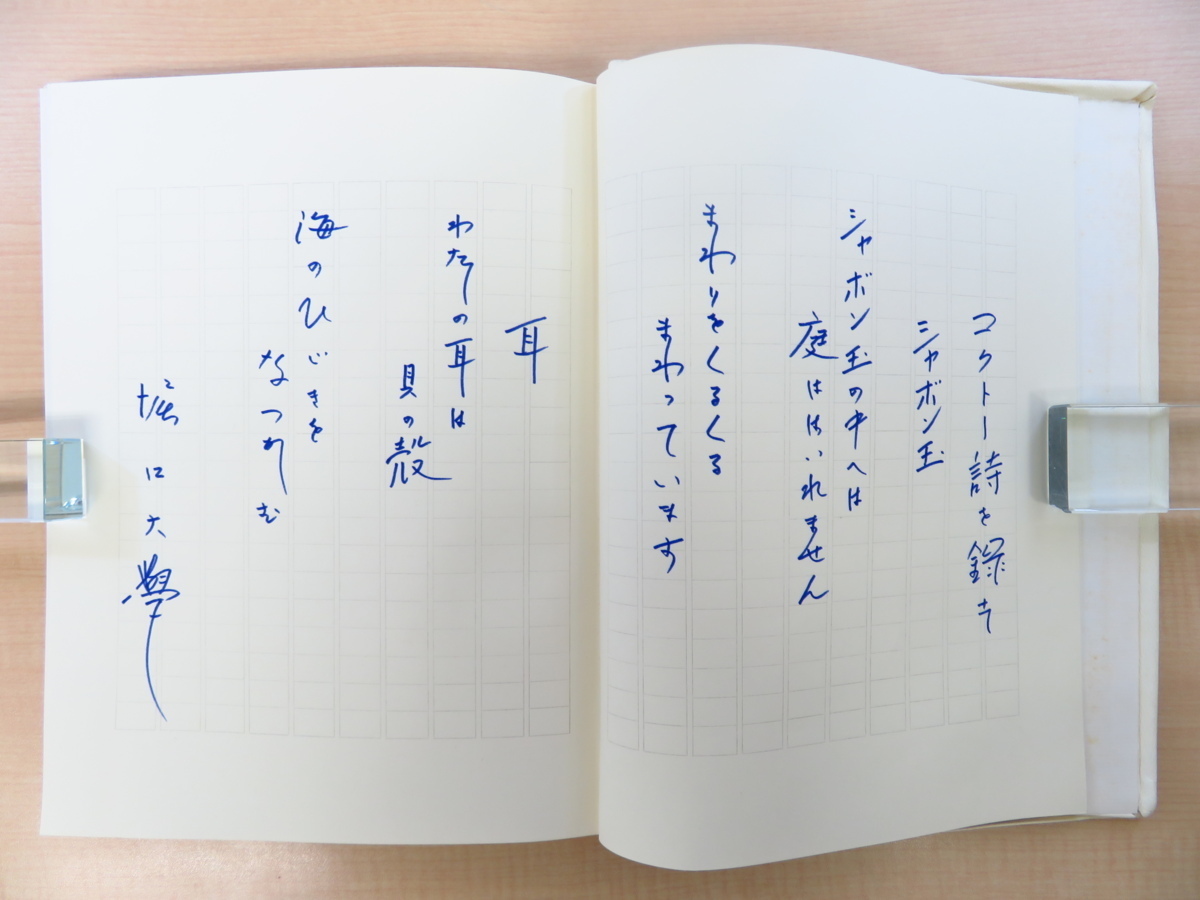 コクトー詩を録す
シャボン玉
シャボン玉の中へは
庭ははいれません
まわりをくるくる
まわっています
耳
わたしの耳は
貝の殻
海のひびきを
なつかしむ
堀口大學